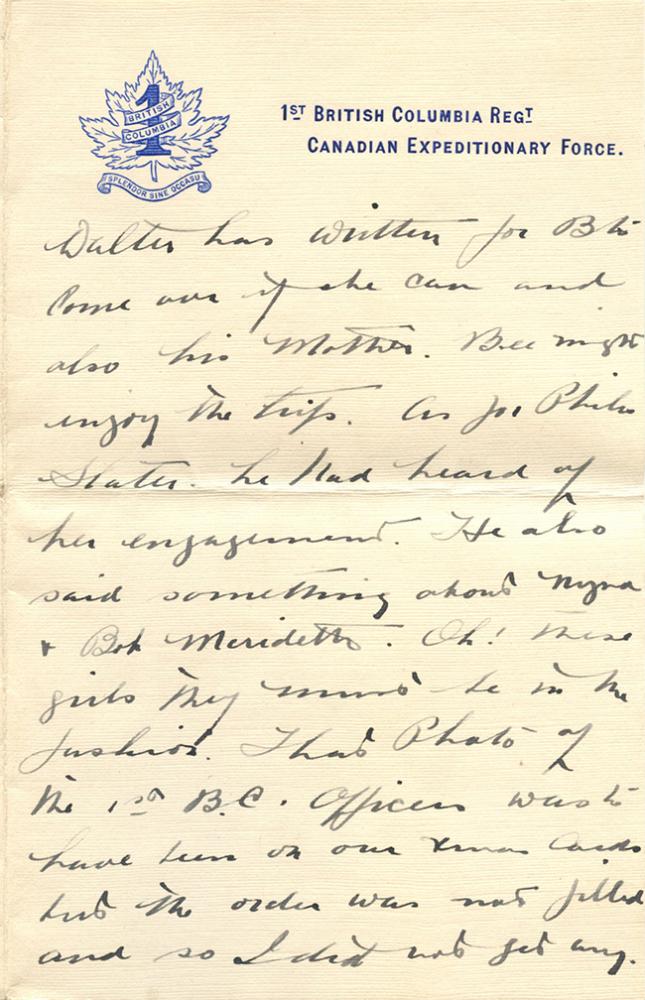 1
BRITISH
COLUMBIA
SPLENDOR SINE OCCASU
1ST BRITISH COLUMBIA REGT
CANADIAN EXPEDITIONARY FORCE.
Walter has written for B to
Come over if she can and
also his Mother. Bee might
enjoy the trip. As for Phils
Slater. he had heard of
her engagement. He also
said something about Myra
+ Bob Merideth. Oh! these
girls they must be in the
fashion. That Photo of
the 1st B.C. Officers was to
have been on our Xmas Cards
but the order was not filled
and so I did not get any.